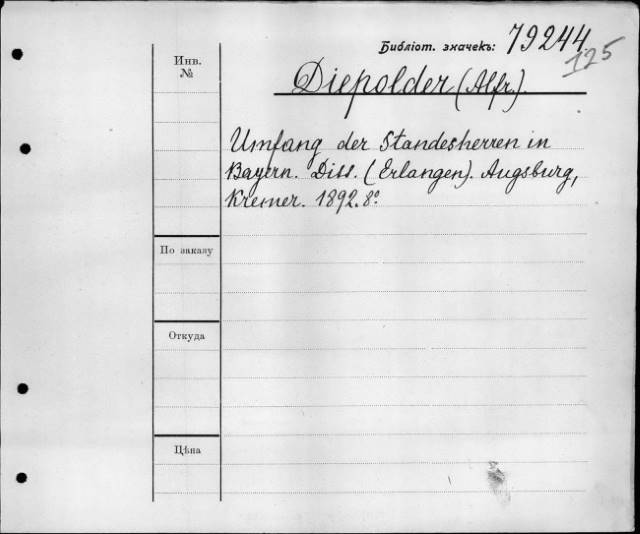 Библіот. значекъ: 79244
125
Инв. №
Diepolder (Alfr.).
Umfang der Standesherren in
Bayern. Diss. (Erlangen). Augsburg,
Kremer. 1892. 8°
По заказу
Откуда
Цѣна